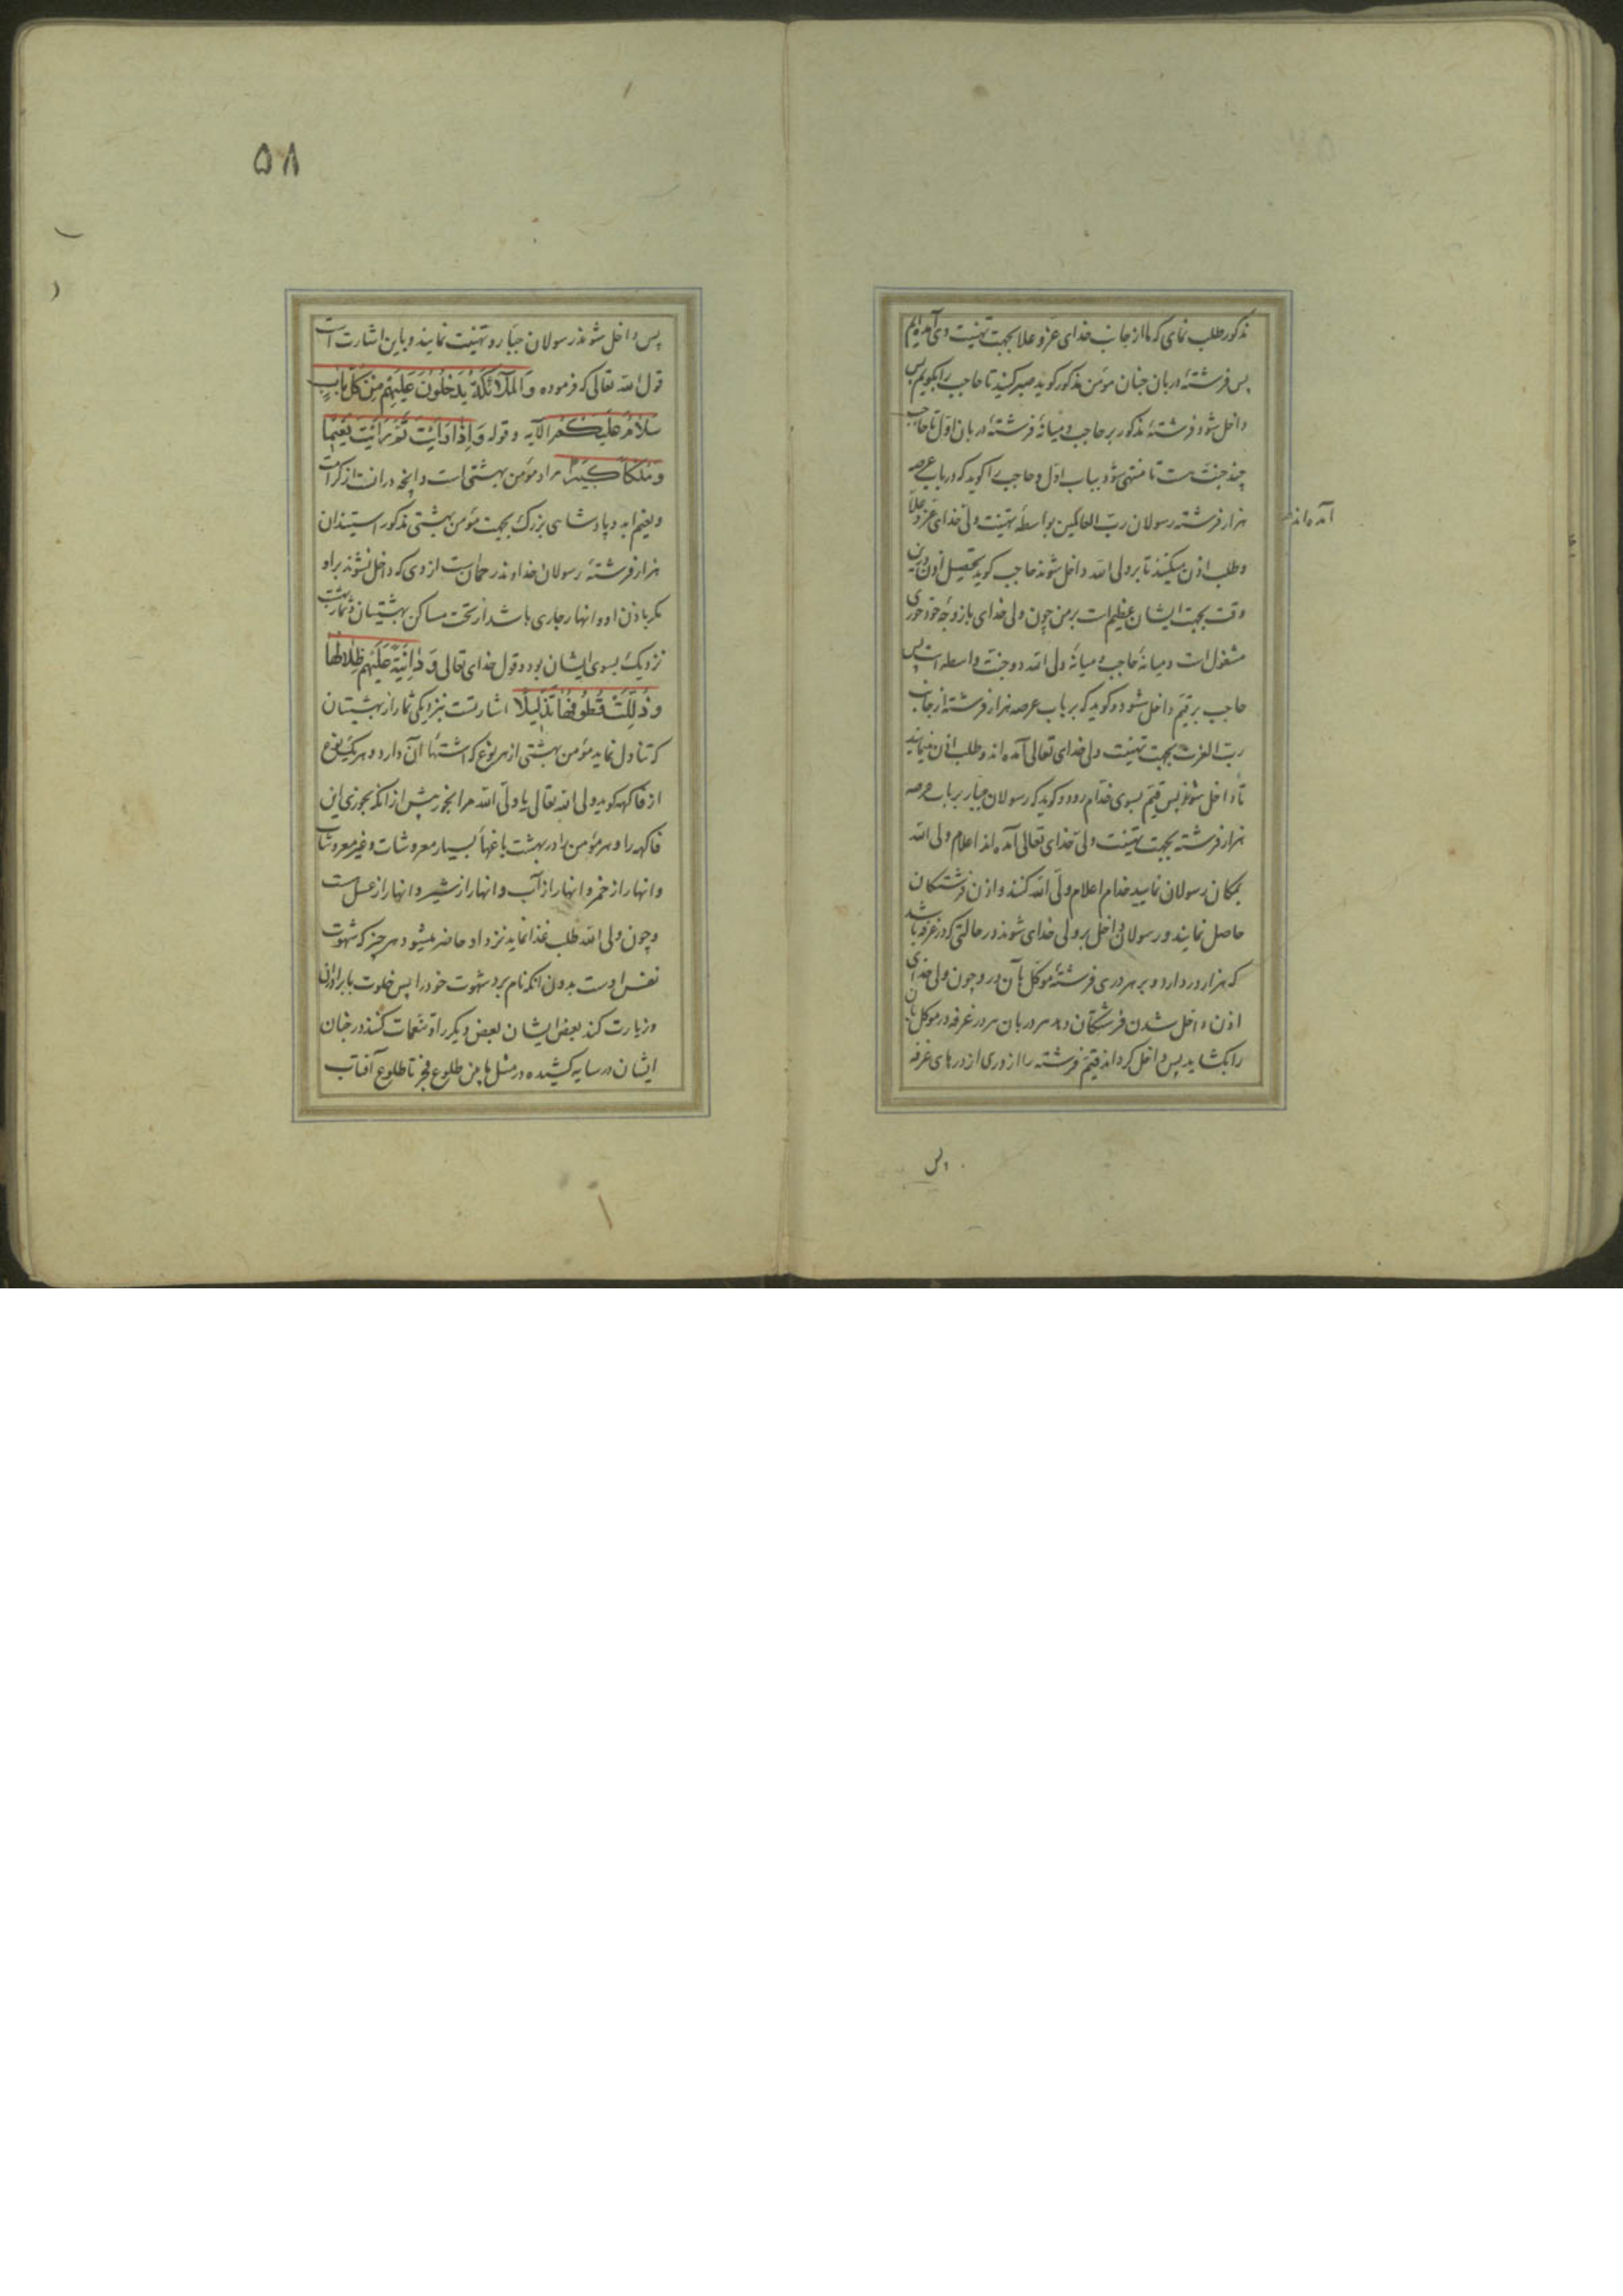 مذکور طلب نمای که ما از جانب خدای عزّ و علا بجهت تهنیت وی آمده‌ایم
پس فرشتهٔ دربان جنان مؤمن مذکور گوید صبر کنید تا حاجب را بگویم پس
داخل شود فرشتهٔ مذکور بر حاجب و میانهٔ فرشتهٔ دربان اوّل تا حاجب
چند جنّت است تا منتهی شود بباب اوّل و حاجب را گوید که در باب عرصه
هزار فرشته رسولان ربّ العالمین بواسطهٔ تهنیت ولی خدای عزّ و علا
آمده‌اند
و طلب اذن میکنند تا بر ولی الله داخل شوند حاجب گوید تحصیل اذن درین
وقت بجهت ایشان عظیم است بر من چون ولی خدای با زوجه خود حوری
مشغول است و میانهٔ حاجب و میانهٔ ولی الله دو جنّت واسطه است پس
حاجب بر قیّم داخل شود و گوید که بر باب عرصه هزار فرشته از جانب
ربّ العزت بجهت تهنیت ولی خدای تعالی آمده‌اند و طلب اذن مینمایند
تا داخل شوند پس قیّم بسوی خدام رود و گوید که رسولان جبار بر باب عرصه
هزار فرشته بجهت تهنیت ولی خدای تعالی آمده‌اند اعلام ولی الله
بمکان رسولان نمایید خدام اعلام ولی الله کنند و اذن فرشتگان
حاصل نمایند و رسولان داخل بر ولی خدای شوند در حالتی که در غرفه باشد
که هزار در دارد و بر هر دری فرشتهٔ موکّل بآن در و چون ولی خدای
اذن داخل شدن فرشتگان دهد هر دربان هر در غرفه در موکل بآن
را بکشاید پس داخل کرداند قیّم فرشته را از دری از درهای غرفه
پس
۵۸
پس داخل شوند رسولان جبّار و تهنیت نمایند و باین اشارت است
قول الله تعالی که فرموده وَالمَلآئِکَةُ یَدخُلُونَ عَلَیهِم مِن کُلِّ بابٍ
سَلامٌ عَلَیکُم الآیه و قوله وَاِذا رَاَیتَ ثَمَّ رَاَیتَ نَعیمًا
وَمُلکًا کَبیرًا مراد مؤمن بهشتی است و آنچه در آنست از کرامت
و نعیم ابد و پادشاهی بزرگ بجهت مؤمن بهشتی مذکور استیذان
هزار فرشتهٔ رسولان خداوند رحمان است از وی که داخل نشوند بر او
مکر باذن او و انهار جاری باشد از تحت مساکن بهشتیان و ثمار بهشت
نزدیک بسوی ایشان بود و قول خدای تعالی وَدانِیَةً عَلَیهِم ظِلالُها
وَذُلِّلَت قُطُوفُها تَذلیلًا اشارتست بنزدیکی ثمار از بهشتیان
که تناول نماید مؤمن بهشتی از هر نوع که اشتهاٴ آن دارد و هر یک نوع
از فاکهه کوید ولی الله تعالی یا ولی الله مرا بخور پیش از آنکه بخوری این
فاکهه را و هر مؤمن را در بهشت باغهاٴ بسیار معروشات و غیر معروشات
و انهار از خمر و انهار از آب و انهار از شیر و انهار از عسل است
و چون ولی الله طلب غذا نماید نزد او حاضر میشود هر چیز که شهوت
نفس اوست بدون آنکه نام برد شهوت خود را پس خلوت با برادران
و زیارت کند بعض ایشان بعض دیکر را و تنعمات کنند در جنان
ایشان در سایه کشیده در مثل ما بین طلوع فجر تا طلوع آفتاب